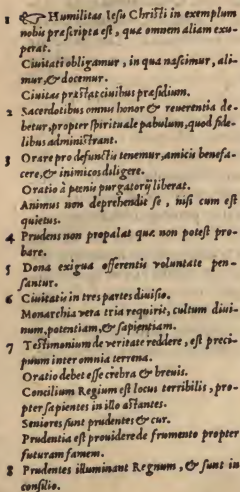 1 ☞ Humilitas Iesu Christi in exemplum
nobis præscripta est, quæ omnem aliam exu-
perat.
Ciuitati obligamur, in qua nascimur, ali-
mur, & docemur.
Ciuitas præstat ciuibus præsidium.
2 Sacerdotibus omnis honor & reuerentia de-
betur, propter spirituale pabulum, quod fide-
libus administrant.
3 Orare pro defunctis tenemur, amicis benefa-
cere, & inimicos diligere.
Oratio à pœnis purgatorij liberat.
Animus non deprehendit se, nisi cum est
quietus.
4 Prudens non propalat quæ non potest pro-
bare.
5 Dona exigua offerentis voluntate pen-
santur.
6 Ciuitatis in tres partes diuisio.
Monarchia vera tria requirit, cultum diui-
num, potentiam, & sapientiam.
7 Testimonium de veritate reddere, est preci-
puum inter omnia terrena.
Oratio debet esse crebra & breuis.
Concilium Regium est locus terribilis, pro-
pter sapientes in illo astantes.
Seniores sunt prudentes & cur.
Prudentia est prouidere de frumento propter
futuram famem.
8 Prudentes illuminant Regnum, & sunt in
consilio.